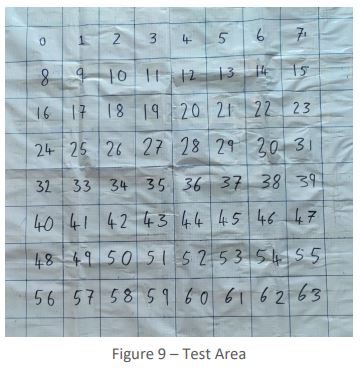 0 1 2 3 4 5 6 7
8 9 10 11 12 13 14 15
16 17 18 19 20 21 22 23
24 25 26 27 28 29 30 31
32 33 34 35 36 37 38 39
40 41 42 43 44 45 46 47
48 49 50 51 52 53 54 55
56 57 58 59 60 61 62 63
Figure 9 – Test Area